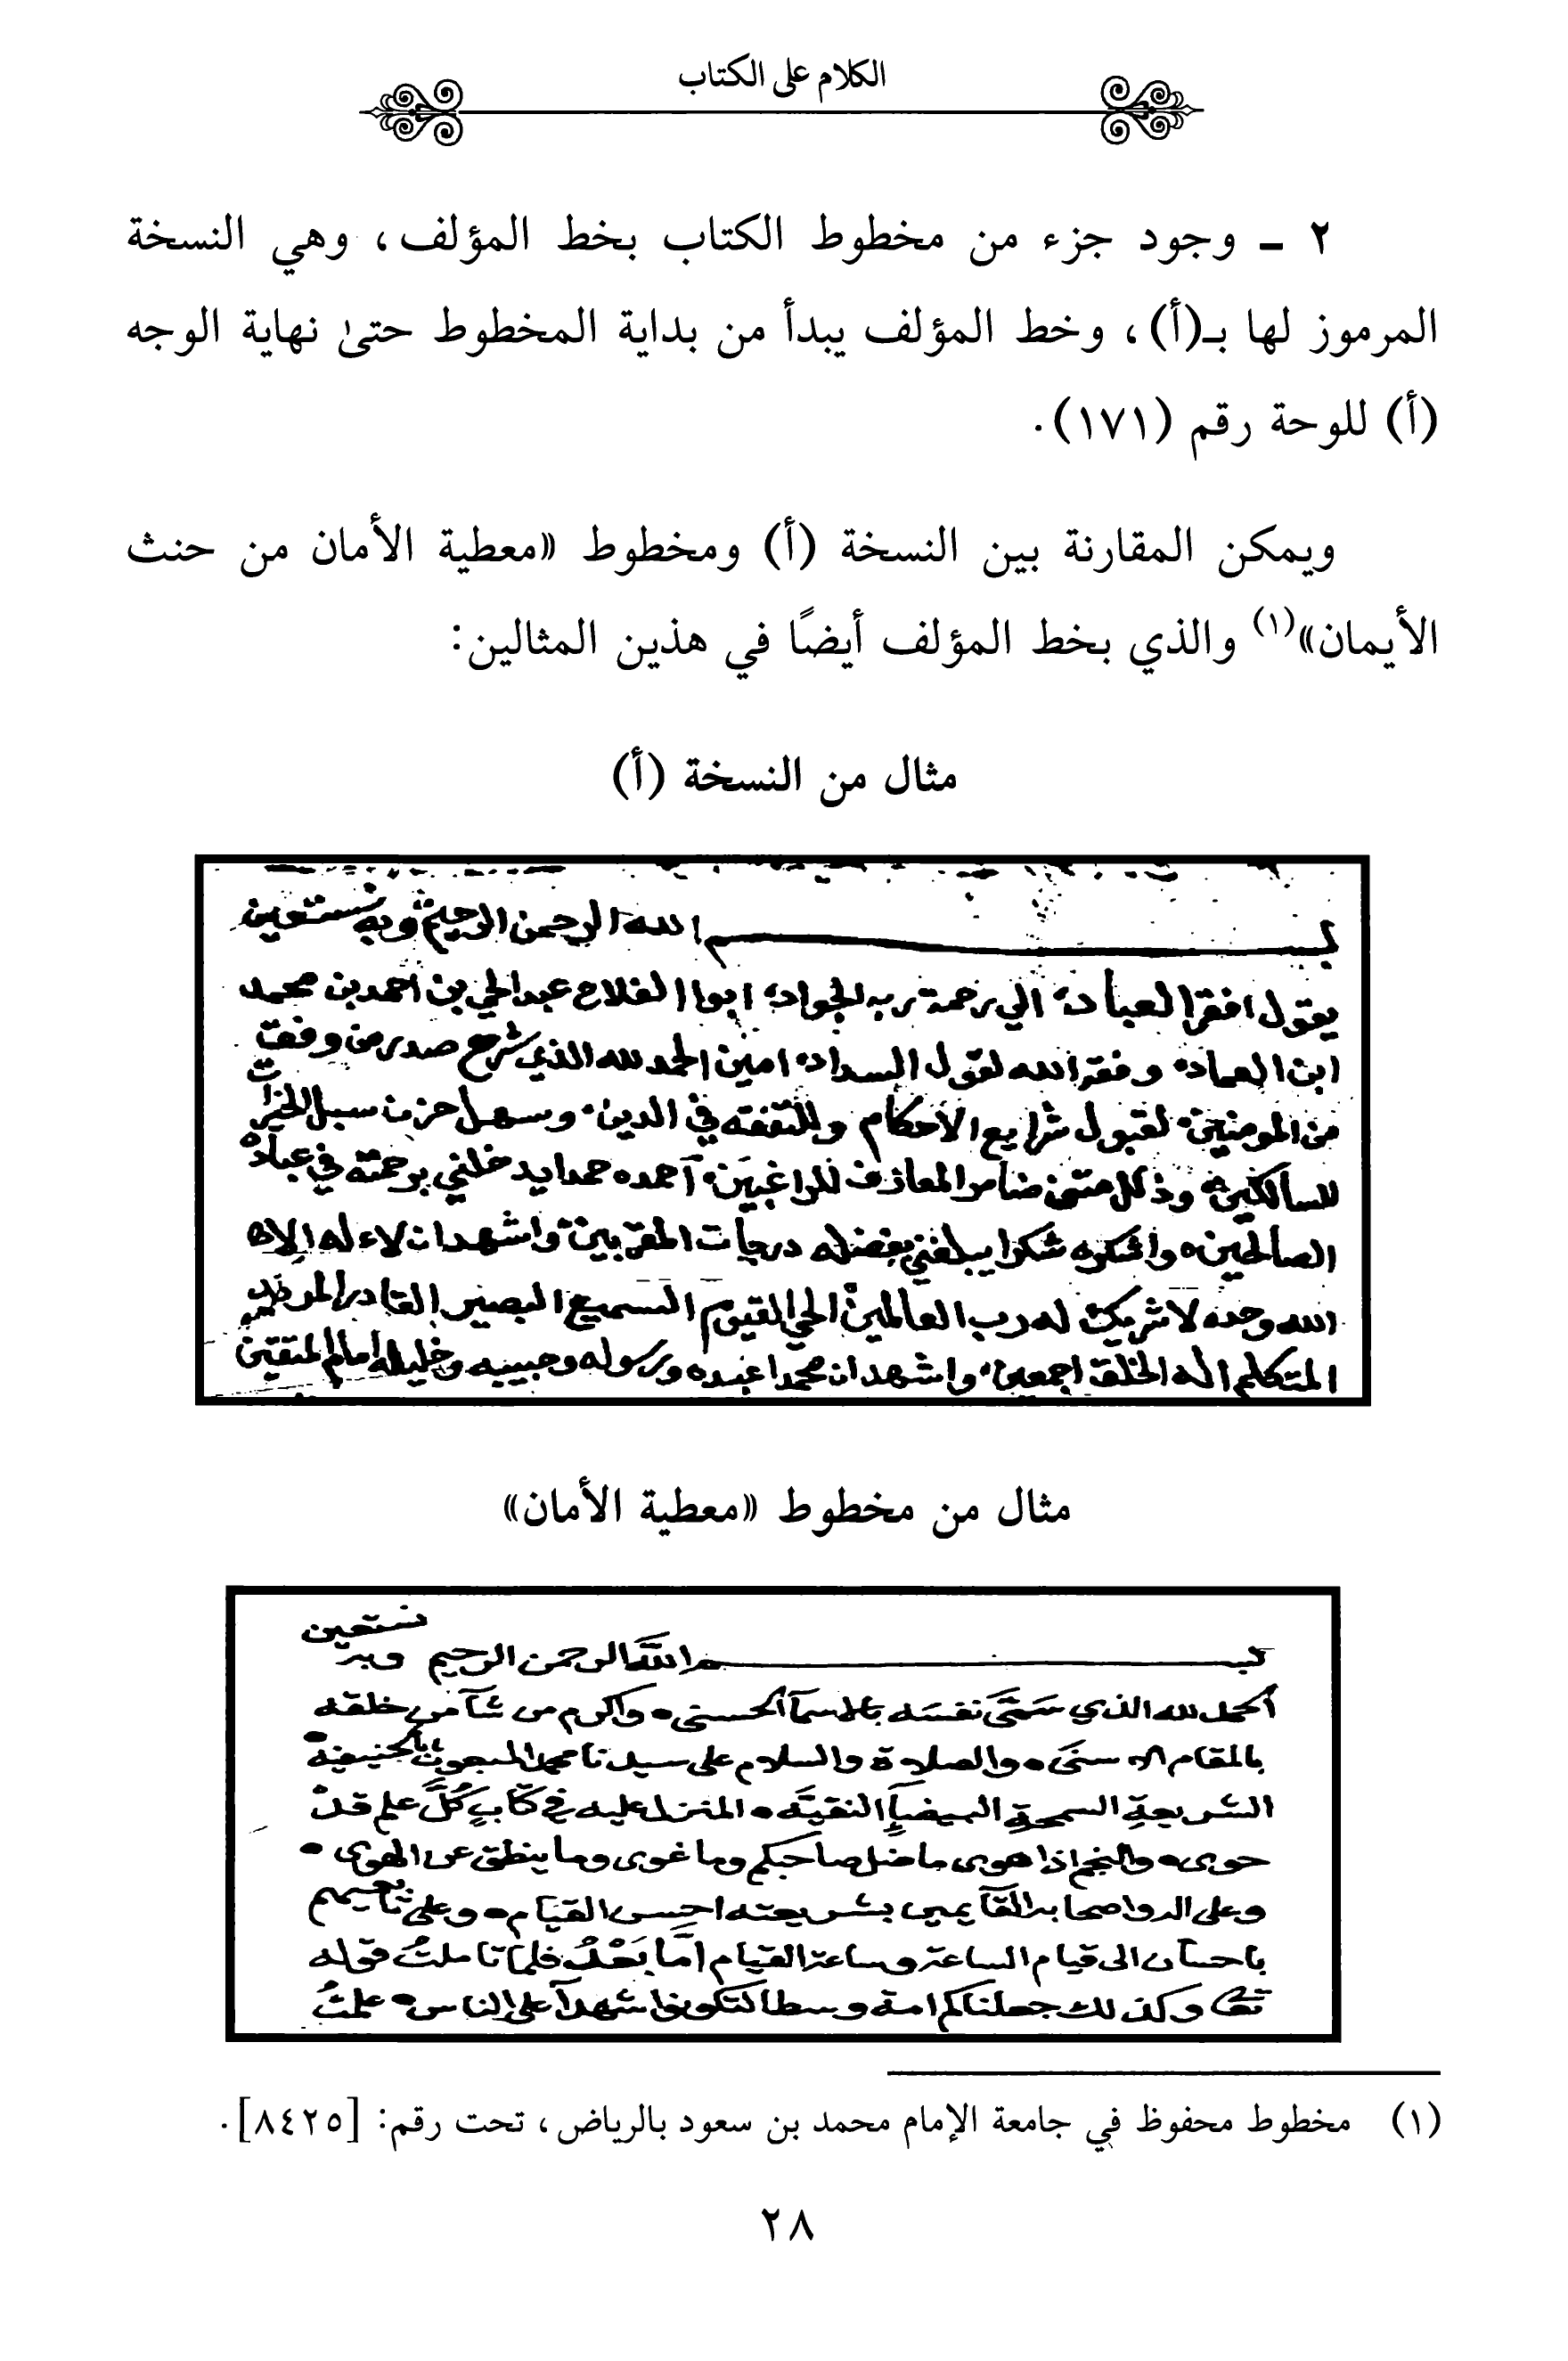 الكلام على الكتاب
٢ ـ وجود جزء من مخطوط الكتاب بخط المؤلف، وهي النسخة
المرموز لها بـ(أ)، وخط المؤلف يبدأ من بداية المخطوط حتىٰ نهاية الوجه
(أ) للوحة رقم (١٧١).
ويمكن المقارنة بين النسخة (أ) ومخطوط «معطية الأمان من حنث
الأيمان»(١) والذي بخط المؤلف أيضًا في هذين المثالين:
مثال من النسخة (أ)
بسم الله الرحمن الرحيم وبه نستعين
يقول افقر العباد، الي رحمة ربه الجواد، ابوا الفلاح عبدالحي بن احمد بن محمد
ابن العماد، وفقه الله لقول السداد، امين الحمد لله الذي شرح صدر من وفقت
من المومنين، لقبول شرايع الاحكام وللتفقه في الدين، وسهل حزن سبل الخيرات
للسالكين، وذلل متن ضامر المعارف للراغبين، أحمده حمدا يدخلني برحمته في عباده
الصالحين، واشكره شكرا يبلغني بفضله درجات المقربين، واشهد ان لا اله الا
الله وحده لا شريك له رب العالمين الحي القيوم السميع البصير القادر المريد
المتكلم اله الخلق اجمعين، واشهد ان محمدا عبده ورسوله وحبيبه وخليله امام المتقين
مثال من مخطوط «معطية الأمان»
بسم الله الرحمن الرحيم وبه نستعين
الحمد لله الذي سَمَّىَ نفسَه بالاسمآ الحسنى، واكرم من شآ من خلقه
بالمقام الاسنىَ، والصلاة والسلام على سيدنا محمد المبعوث بالحنيفية
الشريعةِ السمحةِ البيضآءِ النقيَّه، المنزل عليه في كتابٍ كُلَّ علم قد
حوى، والنجم اذا هوى ما ضل صاحبكم وما غوى وما ينطق عن الهوى،
وعلى اله واصحابه القآيمين بشريعته احسن القيام، وعلى تابعيهم
باحسان الى قيام الساعة وساعة القيام امَّا بَعْدُ فلما تاملتُ قوله
تعالى وكذلك جعلناكم امة وسطا لتكونوا شهدآ على الناس، علمتُ
(١) مخطوط محفوظ في جامعة الإمام محمد بن سعود بالرياض، تحت رقم: [٨٤٢٥].
٢٨